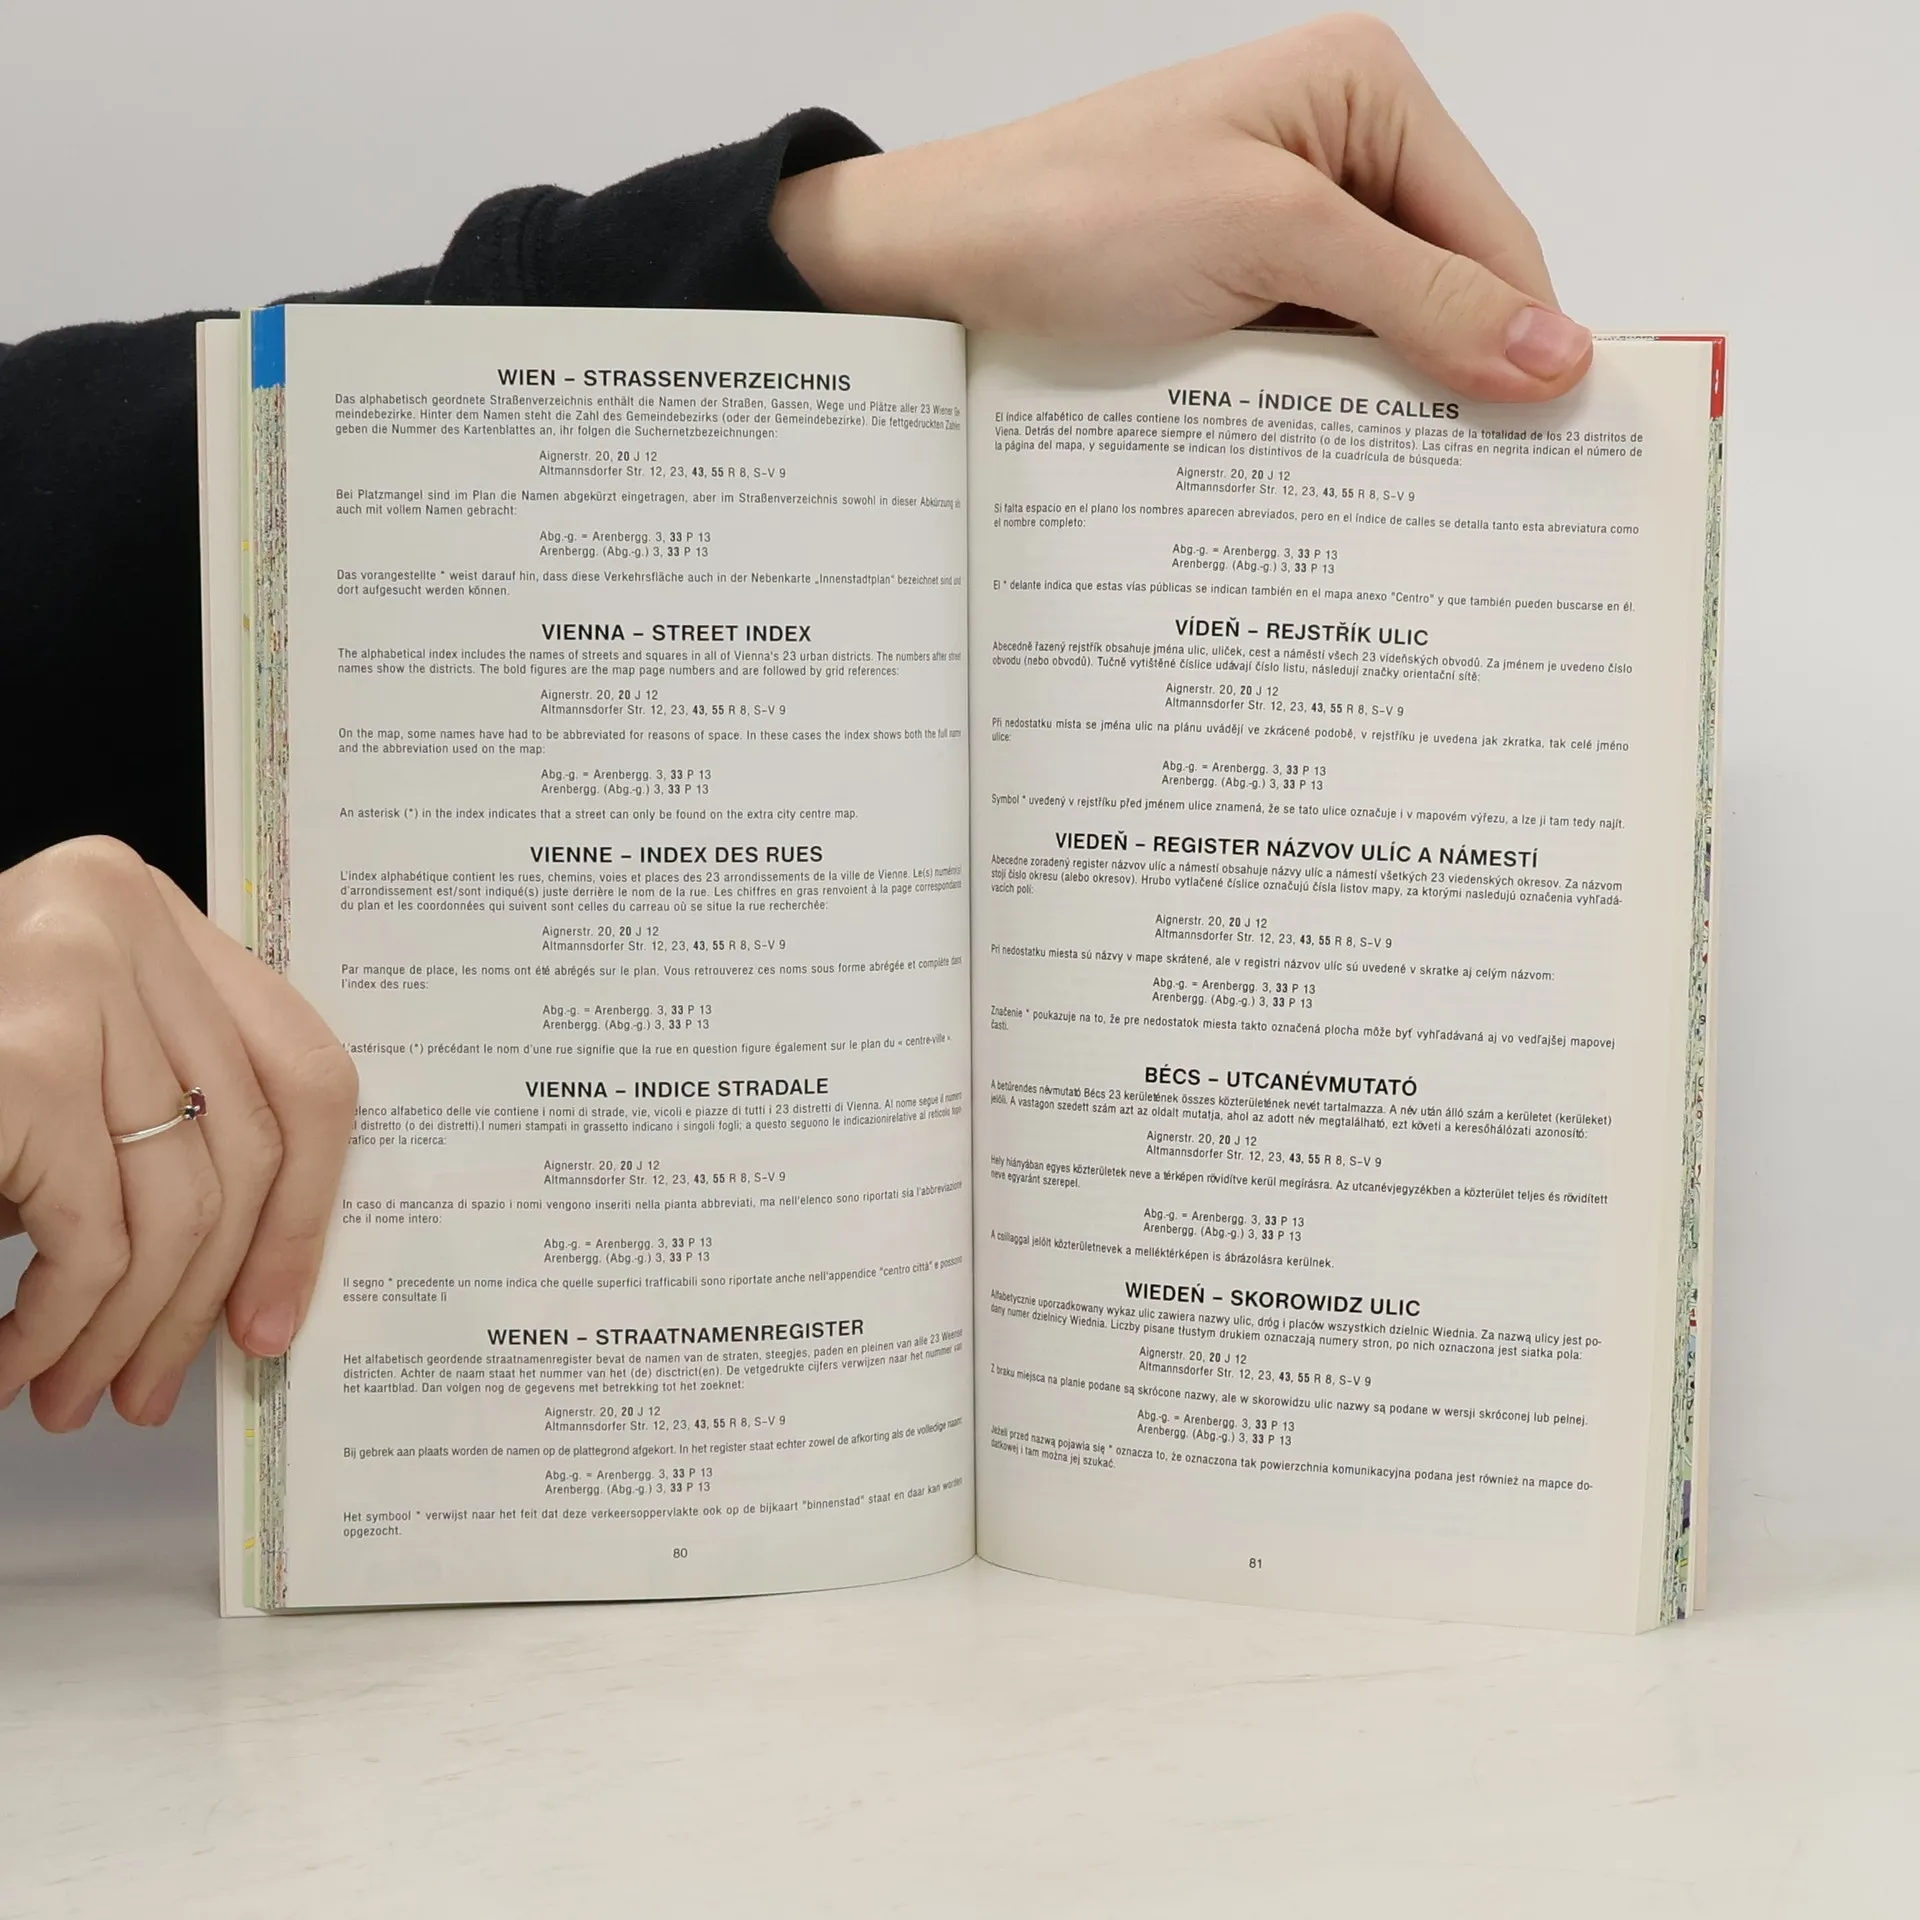 WIEN – STRASSENVERZEICHNIS
Das alphabetisch geordnete Straßenverzeichnis enthält die Namen der Straßen, Gassen, Wege und Plätze aller 23 Wiener Ge
meindebezirke. Hinter dem Namen steht die Zahl des Gemeindebezirks (oder der Gemeindebezirke). Die fettgedruckten Zahlen
geben die Nummer des Kartenblattes an, ihr folgen die Suchernetzbezeichnungen:
Aignerstr. 20, 20 J 12
Altmannsdorfer Str. 12, 23, 43, 55 R 8, S–V 9
Bei Platzmangel sind im Plan die Namen abgekürzt eingetragen, aber im Straßenverzeichnis sowohl in dieser Abkürzung als
auch mit vollem Namen gebracht:
Abg.-g. = Arenbergg. 3, 33 P 13
Arenbergg. (Abg.-g.) 3, 33 P 13
Das vorangestellte * weist darauf hin, dass diese Verkehrsfläche auch in der Nebenkarte „Innenstadtplan" bezeichnet sind und
dort aufgesucht werden können.
VIENNA – STREET INDEX
The alphabetical index includes the names of streets and squares in all of Vienna's 23 urban districts. The numbers after street
names show the districts. The bold figures are the map page numbers and are followed by grid references:
Aignerstr. 20, 20 J 12
Altmannsdorfer Str. 12, 23, 43, 55 R 8, S–V 9
On the map, some names have had to be abbreviated for reasons of space. In these cases the index shows both the full name
and the abbreviation used on the map:
Abg.-g. = Arenbergg. 3, 33 P 13
Arenbergg. (Abg.-g.) 3, 33 P 13
An asterisk (*) in the index indicates that a street can only be found on the extra city centre map.
VIENNE – INDEX DES RUES
L'index alphabétique contient les rues, chemins, voies et places des 23 arrondissements de la ville de Vienne. Le(s) numéro(s)
d'arrondissement est/sont indiqué(s) juste derrière le nom de la rue. Les chiffres en gras renvoient à la page correspondante
du plan et les coordonnées qui suivent sont celles du carreau où se situe la rue recherchée:
Aignerstr. 20, 20 J 12
Altmannsdorfer Str. 12, 23, 43, 55 R 8, S–V 9
Par manque de place, les noms ont été abrégés sur le plan. Vous retrouverez ces noms sous forme abrégée et complète dans
l'index des rues:
Abg.-g. = Arenbergg. 3, 33 P 13
Arenbergg. (Abg.-g.) 3, 33 P 13
L'astérisque (*) précédant le nom d'une rue signifie que la rue en question figure également sur le plan du « centre-ville ».
VIENNA – INDICE STRADALE
elenco alfabetico delle vie contiene i nomi di strade, vie, vicoli e piazze di tutti i 23 distretti di Vienna. Al nome segue il numero
l distretto (o dei distretti).I numeri stampati in grassetto indicano i singoli fogli; a questo seguono le indicazionirelative al reticolo topo
rafico per la ricerca:
Aignerstr. 20, 20 J 12
Altmannsdorfer Str. 12, 23, 43, 55 R 8, S–V 9
In caso di mancanza di spazio i nomi vengono inseriti nella pianta abbreviati, ma nell'elenco sono riportati sia l'abbreviazione
che il nome intero:
Abg.-g. = Arenbergg. 3, 33 P 13
Arenbergg. (Abg.-g.) 3, 33 P 13
Il segno * precedente un nome indica che quelle superfici trafficabili sono riportate anche nell'appendice "centro città" e possono
essere consultate lì
WENEN – STRAATNAMENREGISTER
Het alfabetisch geordende straatnamenregister bevat de namen van de straten, steegjes, paden en pleinen van alle 23 Weense
districten. Achter de naam staat het nummer van het (de) disctrict(en). De vetgedrukte cijfers verwijzen naar het nummer van
het kaartblad. Dan volgen nog de gegevens met betrekking tot het zoeknet:
Aignerstr. 20, 20 J 12
Altmannsdorfer Str. 12, 23, 43, 55 R 8, S–V 9
Bij gebrek aan plaats worden de namen op de plattegrond afgekort. In het register staat echter zowel de afkorting als de volledige naam:
Abg.-g. = Arenbergg. 3, 33 P 13
Arenbergg. (Abg.-g.) 3, 33 P 13
Het symbool * verwijst naar het feit dat deze verkeersoppervlakte ook op de bijkaart "binnenstad" staat en daar kan worden
opgezocht.
80
VIENA – ÍNDICE DE CALLES
El índice alfabético de calles contiene los nombres de avenidas, calles, caminos y plazas de la totalidad de los 23 distritos de
Viena. Detrás del nombre aparece siempre el número del distrito (o de los distritos). Las cifras en negrita indican el número de
la página del mapa, y seguidamente se indican los distintivos de la cuadrícula de búsqueda:
Aignerstr. 20, 20 J 12
Altmannsdorfer Str. 12, 23, 43, 55 R 8, S–V 9
Si falta espacio en el plano los nombres aparecen abreviados, pero en el índice de calles se detalla tanto esta abreviatura como
el nombre completo:
Abg.-g. = Arenbergg. 3, 33 P 13
Arenbergg. (Abg.-g.) 3, 33 P 13
El * delante indica que estas vías públicas se indican también en el mapa anexo "Centro" y que también pueden buscarse en él.
VÍDEŇ – REJSTŘÍK ULIC
Abecedně řazený rejstřík obsahuje jména ulic, uliček, cest a náměstí všech 23 vídeňských obvodů. Za jménem je uvedeno číslo
obvodu (nebo obvodů). Tučně vytištěné číslice udávají číslo listu, následují značky orientační sítě:
Aignerstr. 20, 20 J 12
Altmannsdorfer Str. 12, 23, 43, 55 R 8, S–V 9
Při nedostatku místa se jména ulic na plánu uvádějí ve zkrácené podobě, v rejstříku je uvedena jak zkratka, tak celé jméno
ulice:
Abg.-g. = Arenbergg. 3, 33 P 13
Arenbergg. (Abg.-g.) 3, 33 P 13
Symbol * uvedený v rejstříku před jménem ulice znamená, že se tato ulice označuje i v mapovém výřezu, a lze ji tam tedy najít.
VIEDEŇ – REGISTER NÁZVOV ULÍC A NÁMESTÍ
Abecedne zoradený register názvov ulíc a námestí obsahuje názvy ulíc a námestí všetkých 23 viedenských okresov. Za názvom
stojí číslo okresu (alebo okresov). Hrubo vytlačené číslice označujú čísla listov mapy, za ktorými nasledujú označenia vyhľadá-
vacích polí:
Aignerstr. 20, 20 J 12
Altmannsdorfer Str. 12, 23, 43, 55 R 8, S–V 9
Pri nedostatku miesta sú názvy v mape skrátené, ale v registri názvov ulíc sú uvedené v skratke aj celým názvom:
Abg.-g. = Arenbergg. 3, 33 P 13
Arenbergg. (Abg.-g.) 3, 33 P 13
Značenie * poukazuje na to, že pre nedostatok miesta takto označená plocha môže byť vyhľadávaná aj vo vedľajšej mapovej
časti.
BÉCS – UTCANÉVMUTATÓ
A betűrendes névmutató Bécs 23 kerületének összes közterületének nevét tartalmazza. A név után álló szám a kerületet (kerületeket)
jelöli. A vastagon szedett szám azt az oldalt mutatja, ahol az adott név megtalálható, ezt követi a keresőhálózati azonosító:
Aignerstr. 20, 20 J 12
Altmannsdorfer Str. 12, 23, 43, 55 R 8, S–V 9
Hely hiányában egyes közterületek neve a térképen rövidítve kerül megírásra. Az utcanévjegyzékben a közterület teljes és rövidített
neve egyaránt szerepel.
Abg.-g. = Arenbergg. 3, 33 P 13
Arenbergg. (Abg.-g.) 3, 33 P 13
A csillaggal jelölt közterületnevek a melléktérképen is ábrázolásra kerülnek.
WIEDEŃ – SKOROWIDZ ULIC
Alfabetycznie uporządkowany wykaz ulic zawiera nazwy ulic, dróg i placów wszystkich dzielnic Wiednia. Za nazwą ulicy jest po-
dany numer dzielnicy Wiednia. Liczby pisane tłustym drukiem oznaczają numery stron, po nich oznaczona jest siatka pola:
Aignerstr. 20, 20 J 12
Altmannsdorfer Str. 12, 23, 43, 55 R 8, S–V 9
Z braku miejsca na planie podane są skrócone nazwy, ale w skorowidzu ulic nazwy są podane w wersji skróconej lub pełnej.
Abg.-g. = Arenbergg. 3, 33 P 13
Arenbergg. (Abg.-g.) 3, 33 P 13
Jeżeli przed nazwą pojawia się * oznacza to, że oznaczona tak powierzchnia komunikacyjna podana jest również na mapce do-
datkowej i tam można jej szukać.
81